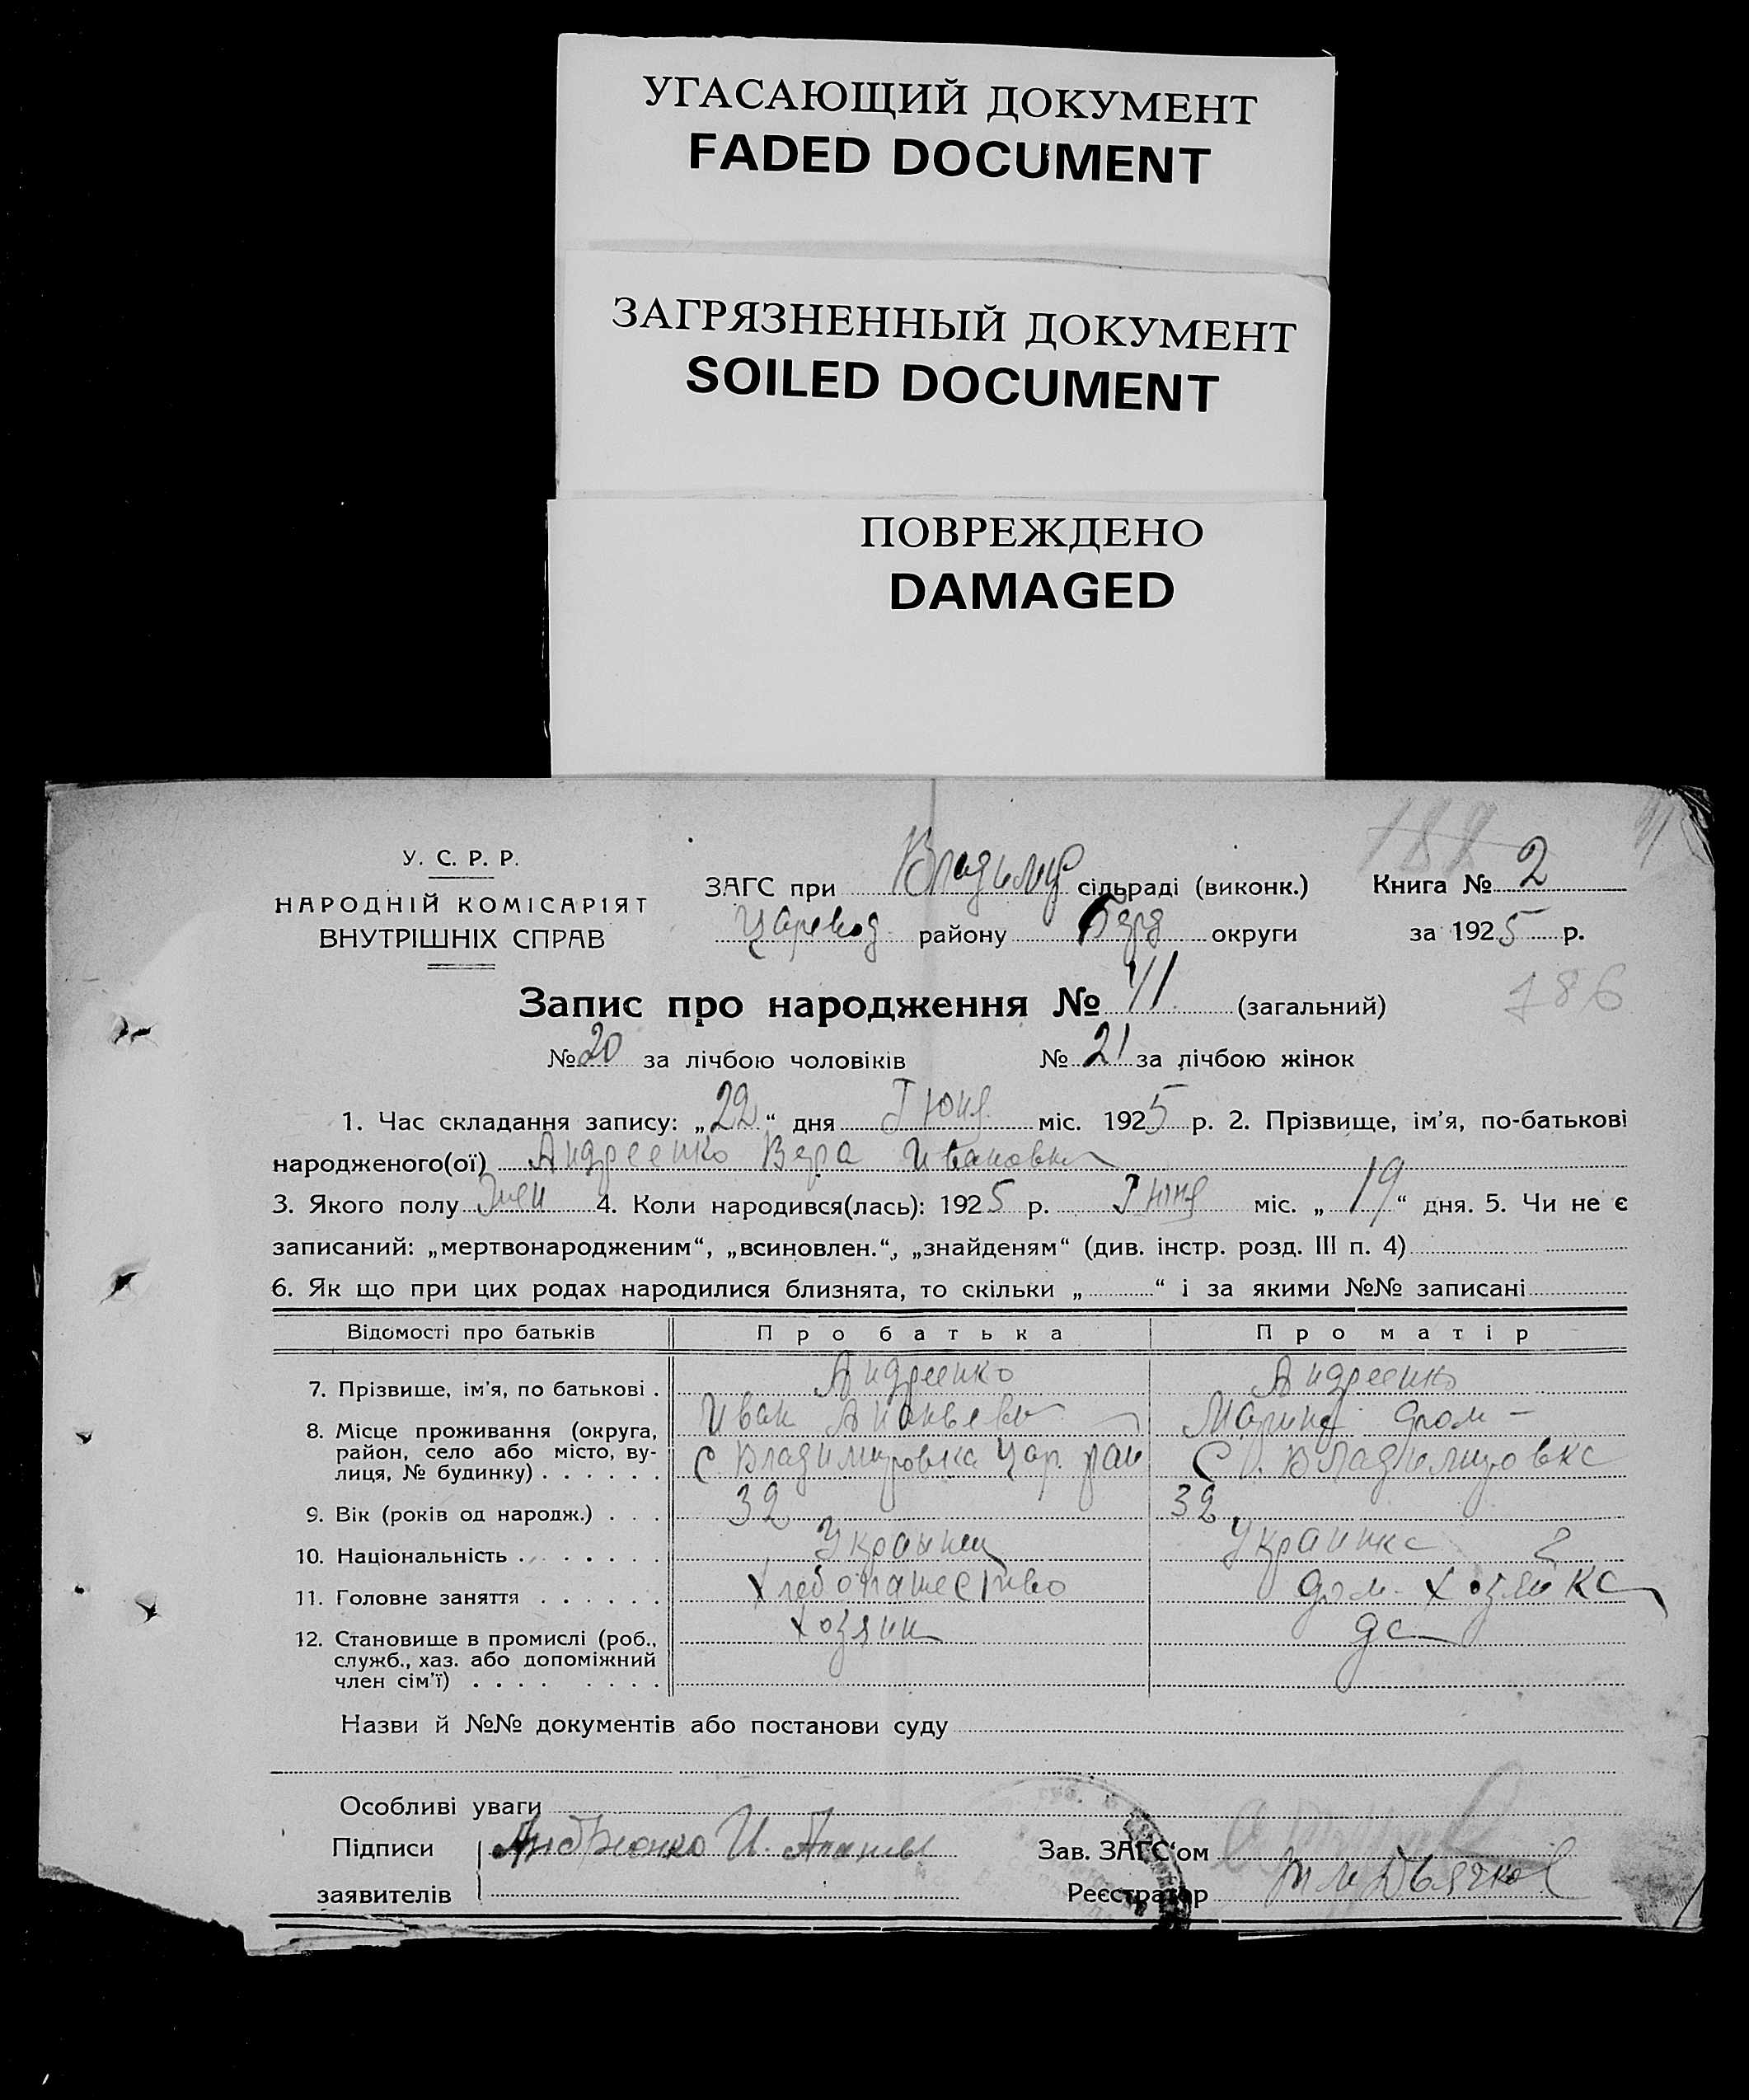 УГАСАЮЩИЙ ДОКУМЕНТ
FADED DOCUMENT
ЗАГРЯЗНЕННЫЙ ДОКУМЕНТ
SOILED DOCUMENT
ПОВРЕЖДЕНО
DAMAGED
У. С. Р. Р.
НАРОДНІЙ КОМІСАРІЯТ
ВНУТРІШНІХ СПРАВ
ЗАГС при Владимир сільраді (виконк.) Книга № 2
Царевод району Берд округи за 1925 р.
186
Запис про народження № 41 (загальний)
№ 20 за лічбою чоловіків № 21 за лічбою жінок
1. Час складання запису: „22“ дня Июня міс. 1925 р. 2. Прізвище, ім’я, по-батькові
народженого(ої) Андреенко Вера Ивановна
3. Якого полу Жен 4. Коли народився(лась): 1925 р. Июня міс. „19“ дня. 5. Чи не є
записаний: „мертвонародженим“, „всиновлен.“, „знайденям“ (див. інстр. розд. III п. 4)
6. Як що при цих родах народилися близнята, то скільки „ “ і за якими №№ записані
Відомості про батьків Про батька Про матір
7. Прізвище, ім’я, по батькові . Андреенко Андреенко
Иван Марина
8. Місце проживання (округа,
район, село або місто, ву-
лиця, № будинку) . . . . . . С. Владимировка Цар. рай С. Владимировка
9. Вік (років од народж.) . . . 32 32
10. Національність . . . . . . . Украинец Украинка
11. Головне заняття . . . . . . Хлебопашество дом. хозяйка
12. Становище в промислі (роб.,
служб., хаз. або допоміжний
член сім’ї) . . . . . . . . Хозяин
Назви й №№ документів або постанови суду
Особливі уваги
Підписи
заявителів
Зав. ЗАГС‘ом
Реєстратор